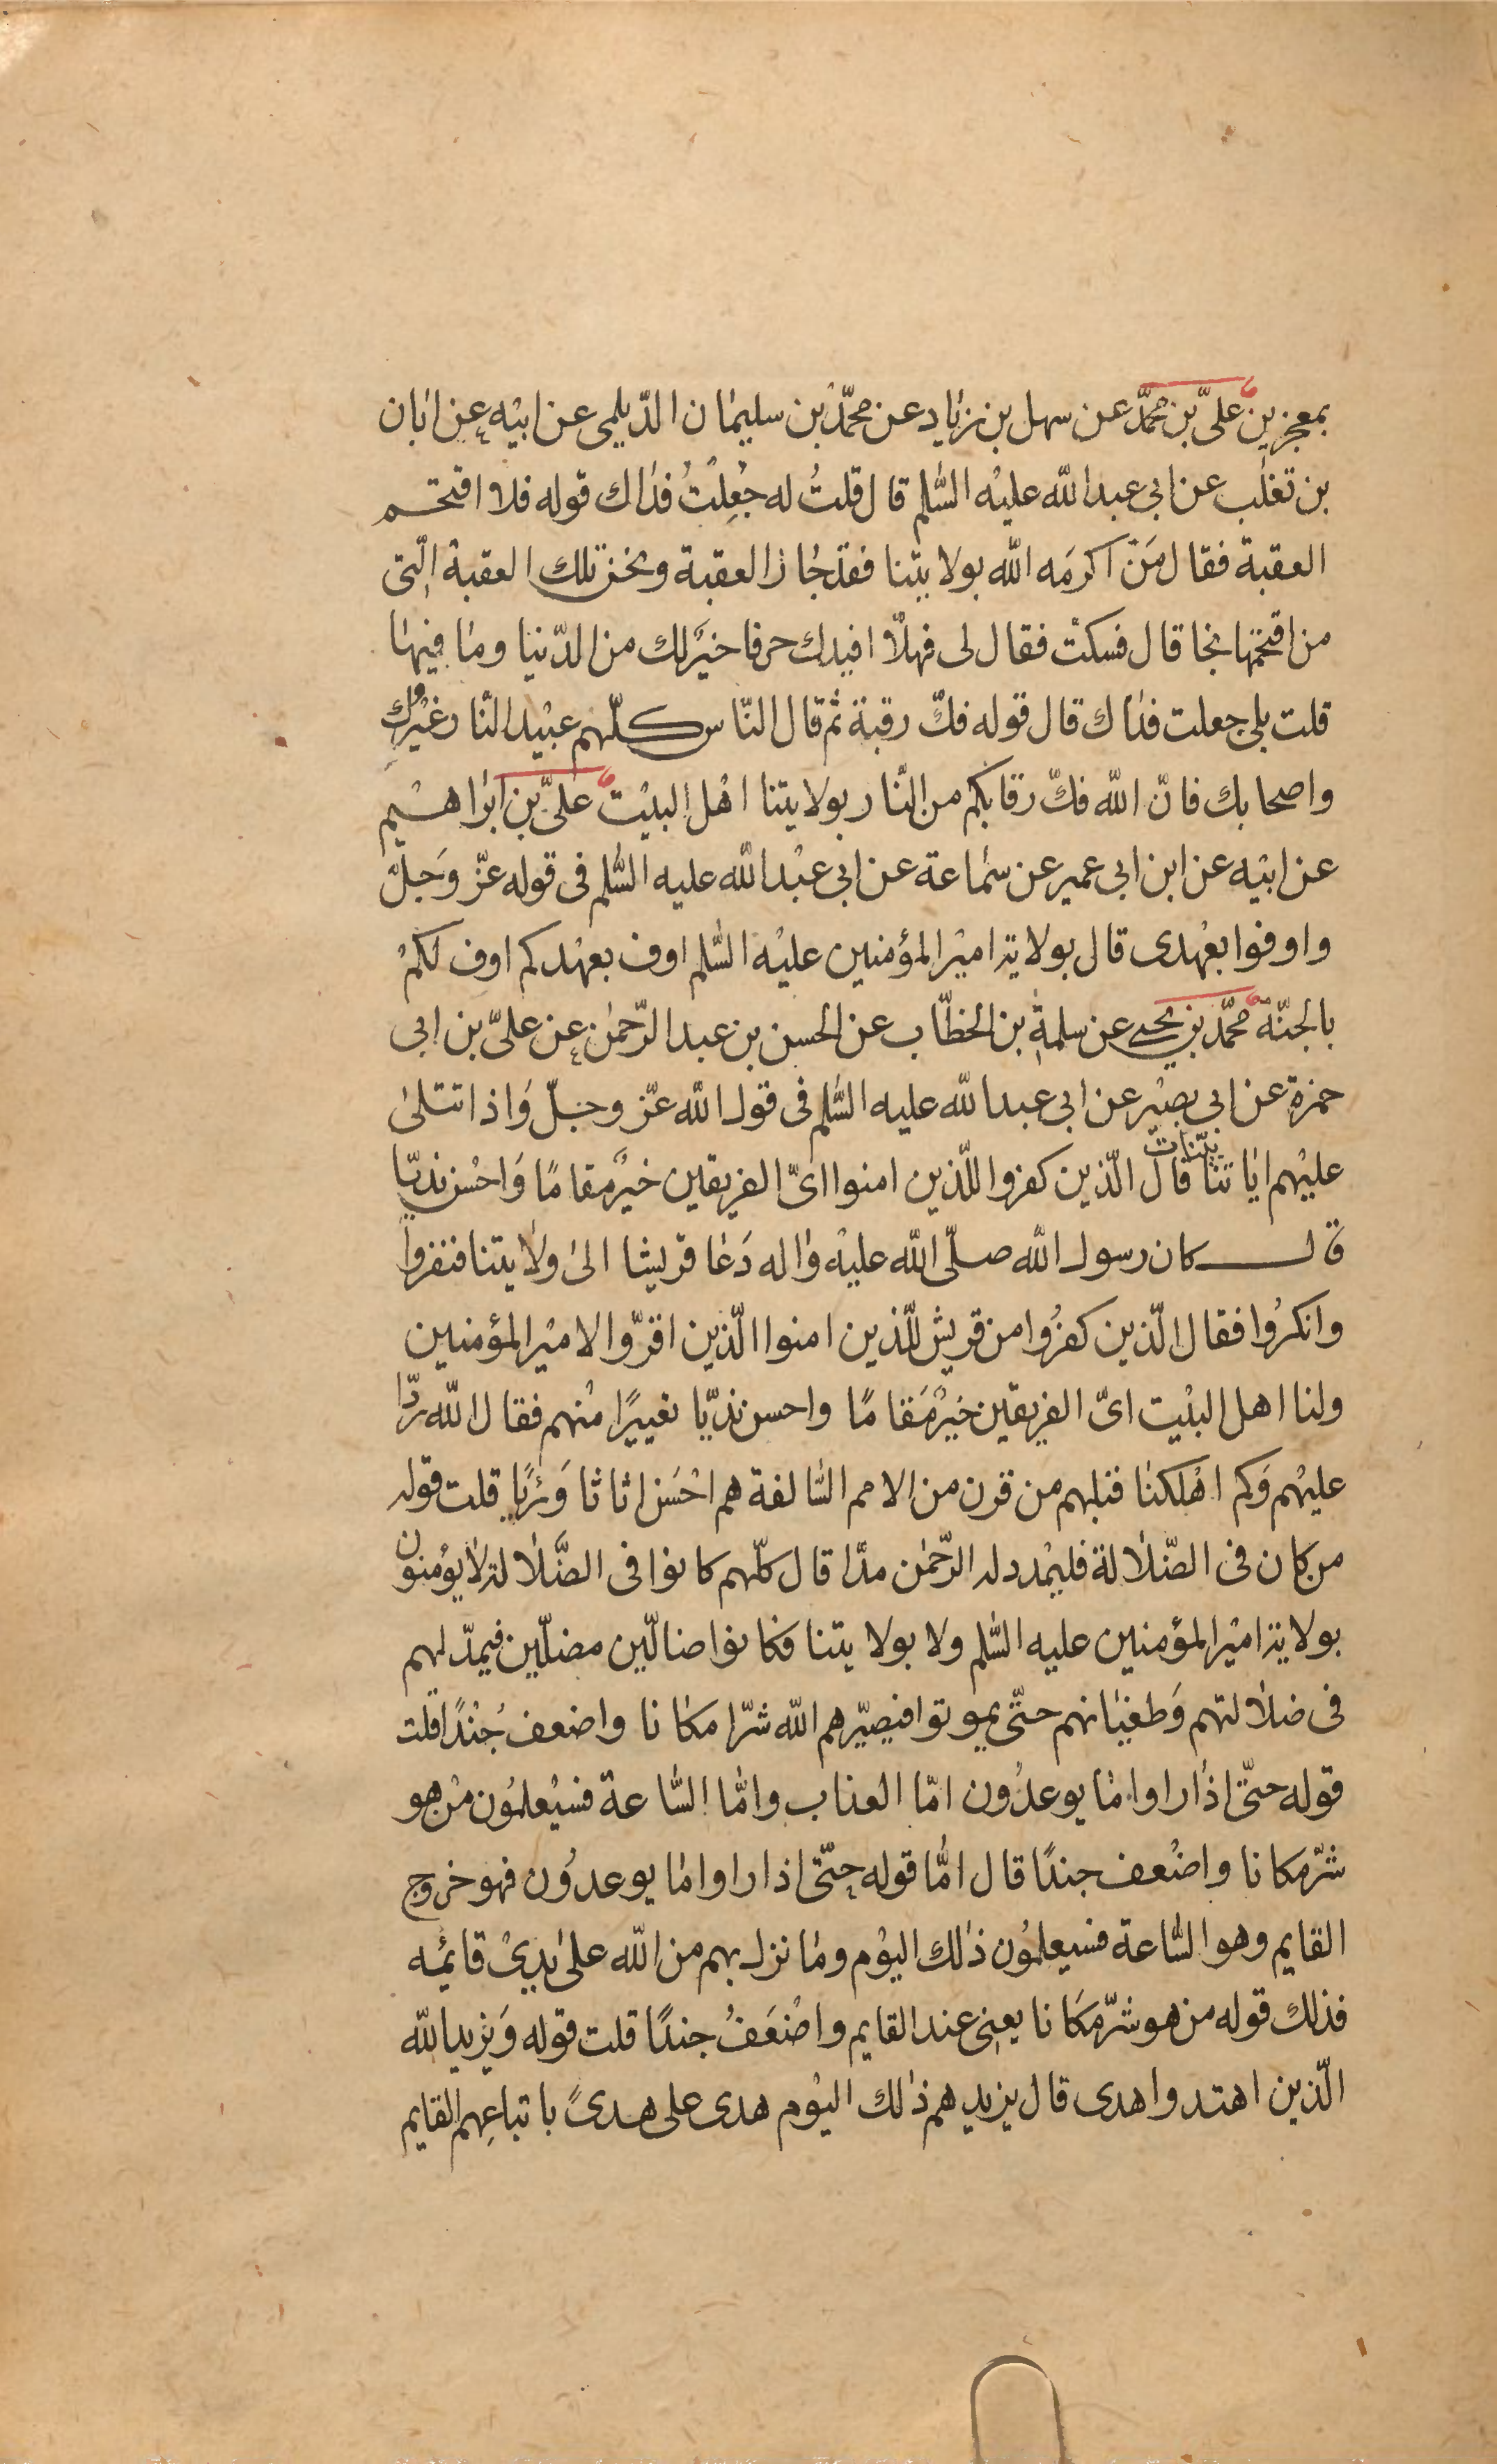 بمعجزين علىّ بن محمّد عن سهل بن زياد عن محمّد بن سليمان الدّيلمى عن ابيه عن ابان
بن تغلب عن ابى عبد الله عليه السّلم قال قلتُ له جُعِلتُ فداك قوله فلا اقتحم
العقبة فقال مَنْ اكرمَه الله بولايتنا فقد جاز العقبة ونحن تلك العقبة الّتى
من اقتحمها نجا قال فسكت فقال لى فهلّا افيدك حرفا خيرٌ لك من الدّنيا وما فيها
قلت بلى جعلت فداك قال قوله فكّ رقبة ثم قال النّاس كلّهم عبيد النّار غيرك
واصحابك فانّ الله فكّ رقابكم من النّار بولايتنا اهل البيت علىّ بن ابراهيم
عن ابيه عن ابن ابى عمير عن سماعة عن ابى عبد الله عليه السّلم فى قوله عزّ وجلّ
واوفوا بعهدى قال بولاية امير المؤمنين عليه السّلم اوف بعهدكم اوف لكم
بالجنّة محمّد بن يحيى عن سلمة بن الخطّاب عن الحسن بن عبد الرّحمن عن علىّ بن ابى
حمزة عن ابى بصير عن ابى عبد الله عليه السّلم فى قول الله عزّ وجلّ وَاذا تتلى
عليهم اياتنا بيّنات قال الّذين كفروا للّذين امنوا اىّ الفريقين خيرٌ مقامًا وَاحسن نديّا
قال كان رسول الله صلّى الله عليه واله دَعا قريشا الى ولايتنا فنفروا
وانكرُوا فقال الّذين كفرُوا من قريش للّذين امنوا الّذين اقرّوا لامير المؤمنين
ولنا اهل البيت اىّ الفريقين خيرٌ مَقامًا واحسن نديّا تعييرًا منهم فقال الله ردّا
عليهم وَكم اهلكنا قبلهم من قرن من الامم السّالفة هم احْسَن اثاثا وَرئيًا قلت قوله
من كان فى الضّلالة فليمدد له الرّحمن مدّا قال كلّهم كانوا فى الضّلالة لا يؤمنون
بولاية امير المؤمنين عليه السّلم ولا بولايتنا فكانوا ضالّين مضلّين فيمدّ لهم
فى ضلالتهم وَطغيانهم حتّى يموتوا فيصيّرهم الله شرّا مكانا واضعف جُندًا قلت
قوله حتّى اذا راوا ما يوعدُون امّا العذاب وامّا السّاعة فسيعلمُون من هو
شرّ مكانا واضعف جندًا قال امّا قوله حتّى اذا راوا ما يوعدُون فهو خروج
القايم وهو السّاعة فسيعلمُون ذلك اليوم وما نزل بهم من الله على يدىْ قائمه
فذلك قوله من هو شرّ مكانا يعنى عند القايم واضْعَفُ جندًا قلت قوله وَيزيد الله
الّذين اهتدوا هدى قال يزيدهم ذلك اليوم هدى على هدىً باتباعهم القايم